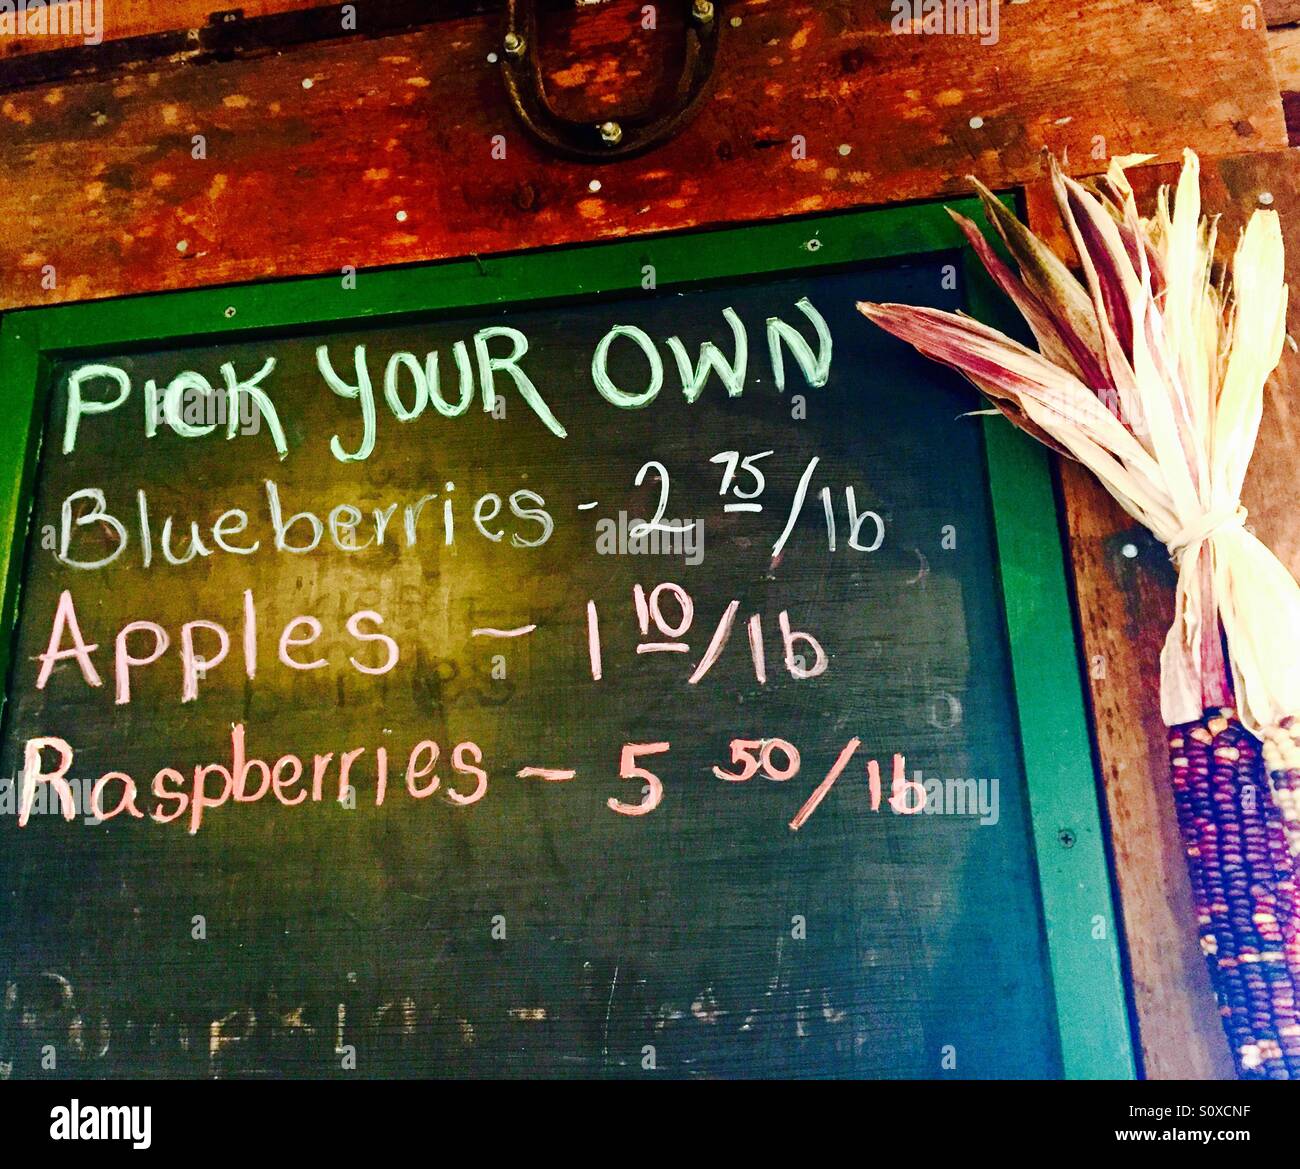 PICK YOUR OWN
Blueberries - 2 75/lb
Apples - 1 10/lb
Raspberries - 5 50/lb
Pumpkins -
alamy
Image ID: S0XCNF
www.alamy.com